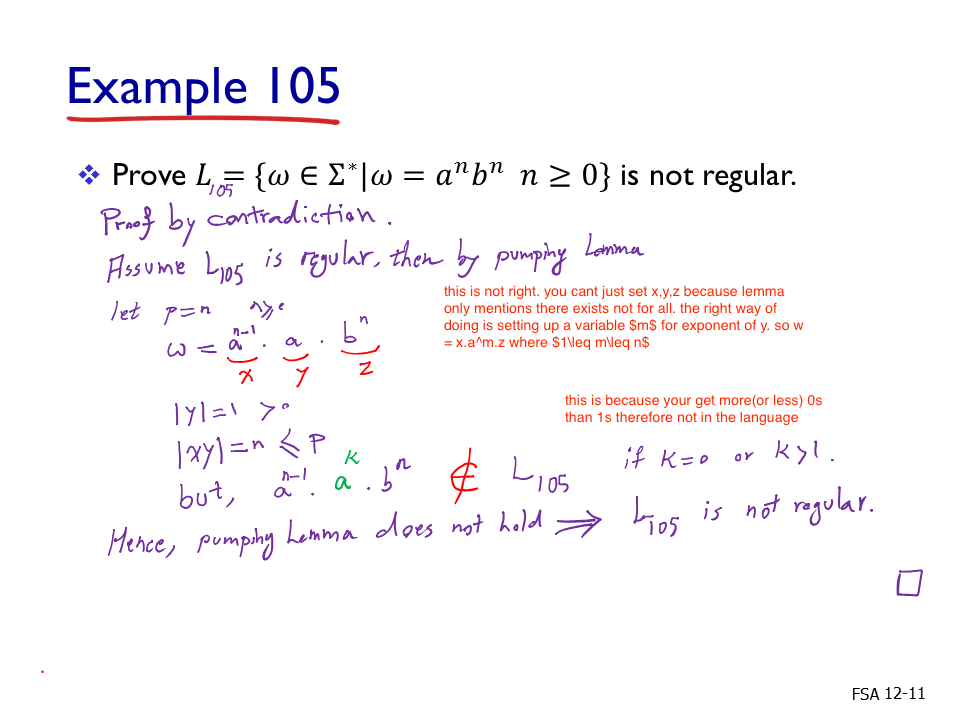 Example 105
❖ Prove L₁₀₅ = {ω ∈ Σ*|ω = aⁿbⁿ n ≥ 0} is not regular.
Proof by contradiction.
Assume L₁₀₅ is regular, then by pumping Lemma
let p=n n≥0
this is not right. you cant just set x,y,z because lemma
only mentions there exists not for all. the right way of
doing is setting up a variable $m$ for exponent of y. so w
= x.a^m.z where $1\leq m\leq n$
ω = aⁿ⁻¹ . a . bⁿ
x y z
this is because your get more(or less) 0s
than 1s therefore not in the language
|y|=1 >0
|xy|=n ≤ P
but, aⁿ⁻¹ . aᴷ . bⁿ ∉ L₁₀₅ if K=0 or K>1.
Hence, pumping Lemma does not hold ⟹ L₁₀₅ is not regular.
□
FSA 12-11